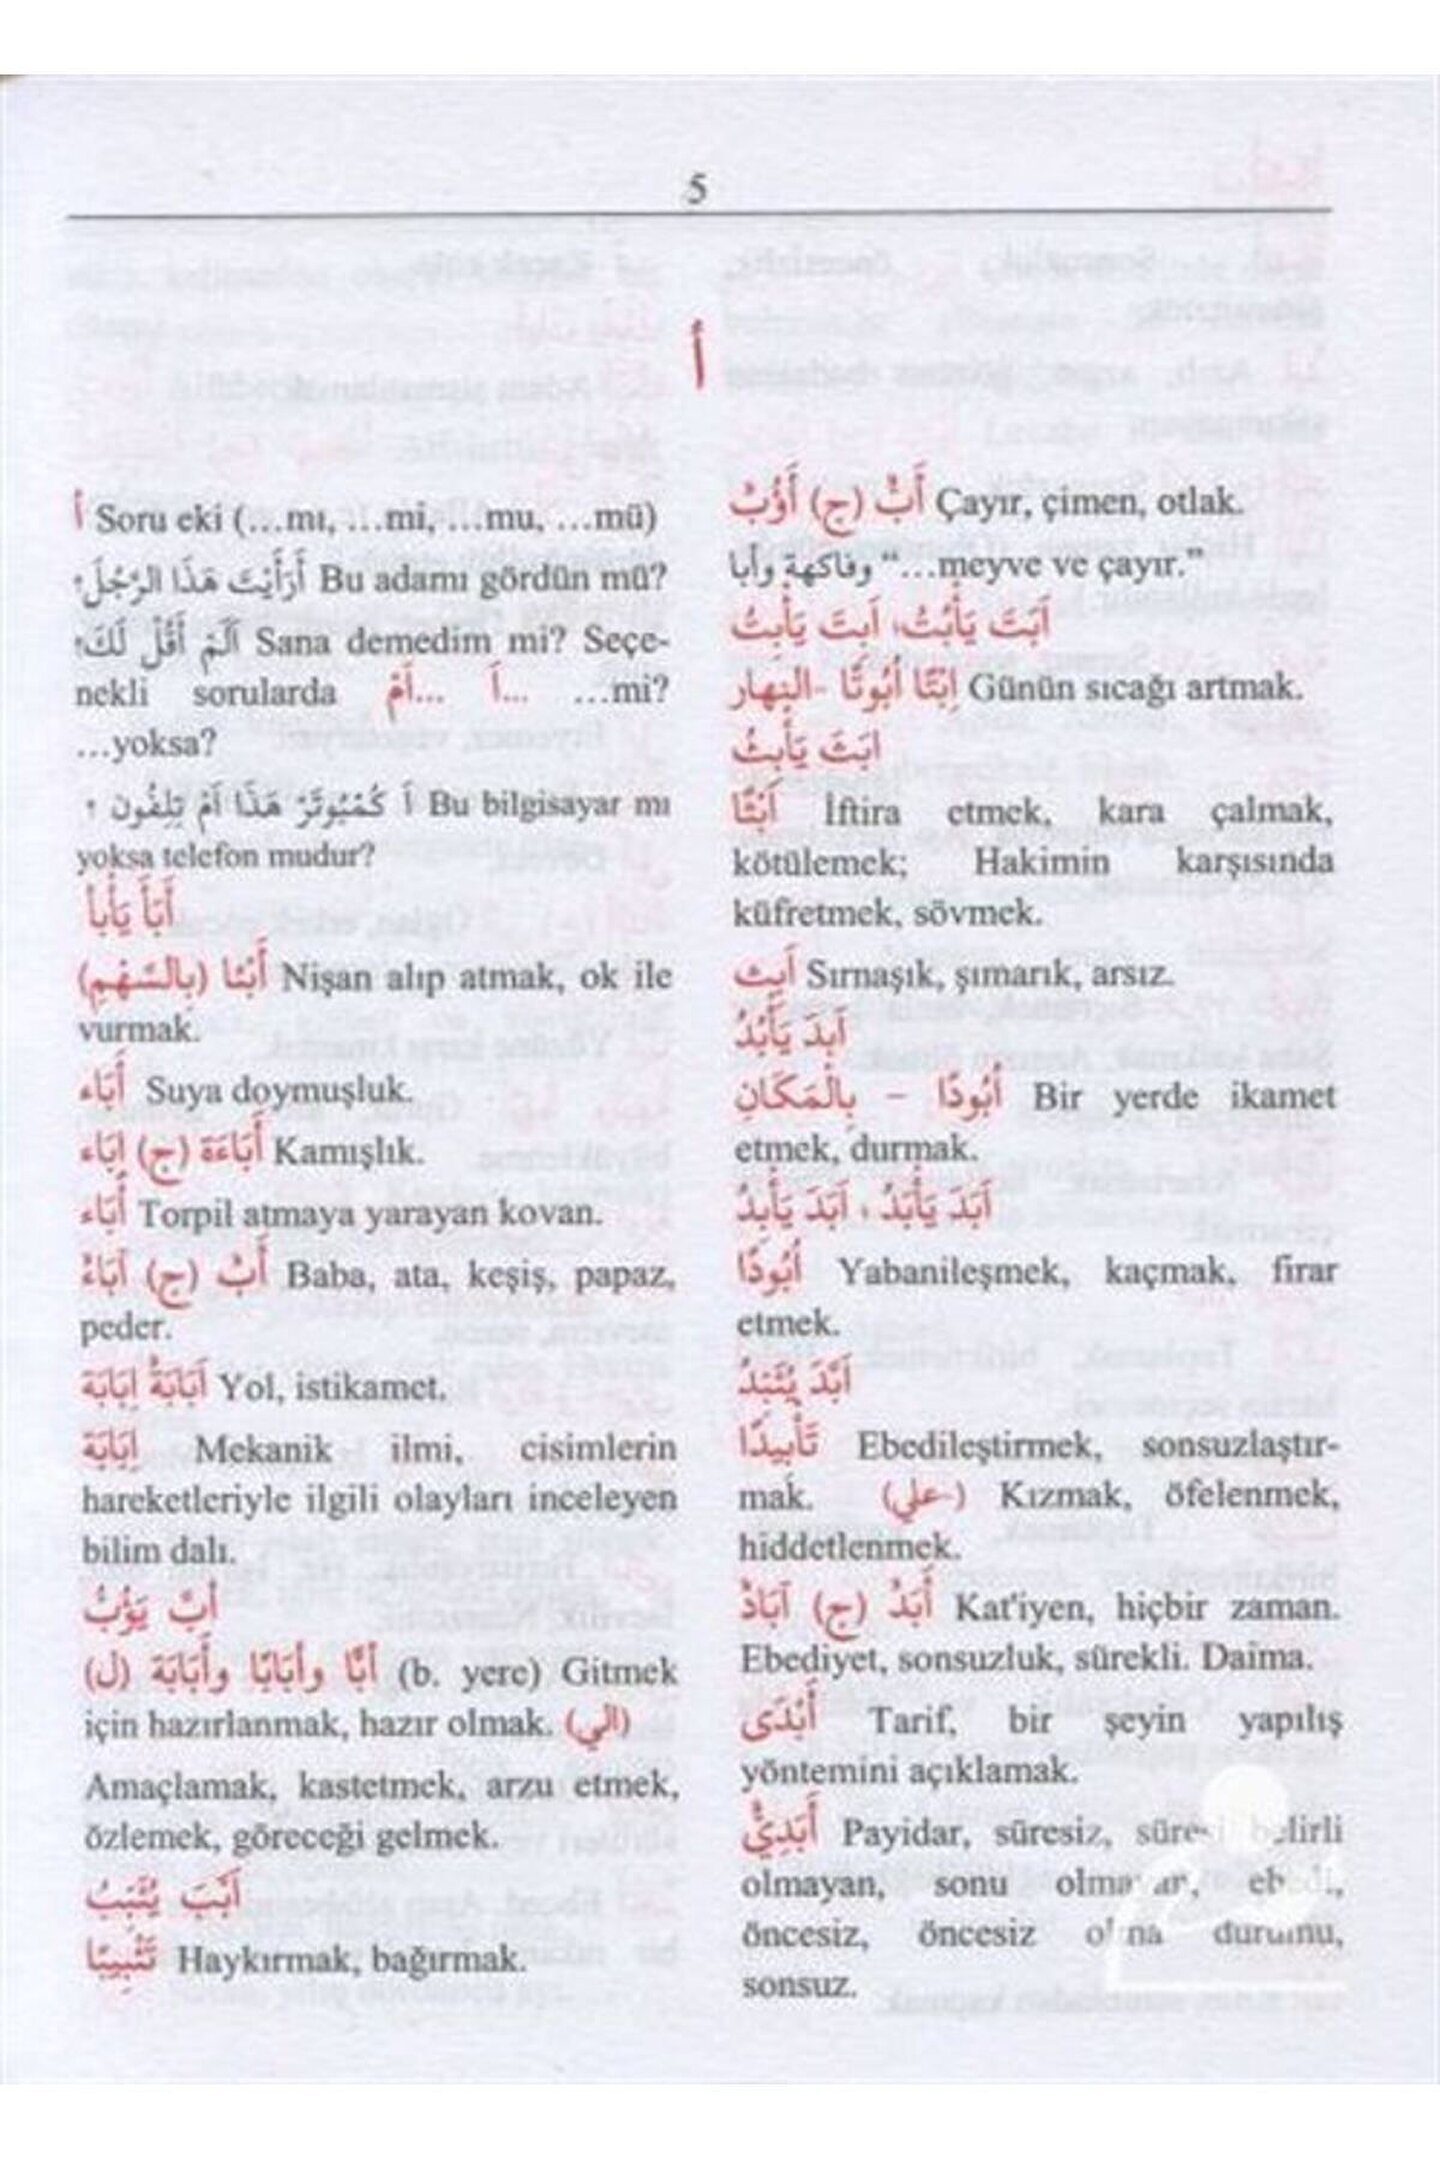 5
أ
أ Soru eki (…mı, …mi, …mu, …mü)
أَرَأَيْتَ هَذَا الرَّجُلَ؟ Bu adamı gördün mü?
اَلَمْ أَقُلْ لَكَ؟ Sana demedim mi? Seçe-
nekli sorularda اَمْ... اَ... …mi?
…yoksa?
اَ كُمْبُيُوتَرْ هَذَا اَمْ تِلِفُون ؟ Bu bilgisayar mı
yoksa telefon mudur?
أَبَأَ يَأْبَأُ
أَبْئا (بِالسَّهْمِ) Nişan alıp atmak, ok ile
vurmak.
أَبَاء Suya doymuşluk.
أَبَاءَة (ج) اِبَاء Kamışlık.
أُبَاء Torpil atmaya yarayan kovan.
أَبٌ (ج) آبَاءُ Baba, ata, keşiş, papaz,
peder.
اَبَابَةُ اِبَابَة Yol, istikamet.
اِبَابَة Mekanik ilmi, cisimlerin
hareketleriyle ilgili olayları inceleyen
bilim dalı.
اَبَّ يَؤُبُّ
أَبًّا وأَبَابًا وأَبَابَة (ل) (b. yere) Gitmek
için hazırlanmak, hazır olmak. (الي)
Amaçlamak, kastetmek, arzu etmek,
özlemek, göreceği gelmek.
اَبَّبَ يُئَبِّبُ
تَئْبِيبًا Haykırmak, bağırmak.
أَبٌّ (ج) أَؤُبٌّ Çayır, çimen, otlak.
وفاكهة وأبا “…meyve ve çayır.”
اَبَتَ يَأْبُتُ، اَبِتَ يَأْبِتُ
اِبْتًا اُبُوتًا -النهار Günün sıcağı artmak.
اَبَثَ يَأْبِثُ
اَبْثًا İftira etmek, kara çalmak,
kötülemek; Hakimin karşısında
küfretmek, sövmek.
اَبِث Sırnaşık, şımarık, arsız.
اَبِدَ يَأْبُدُ
أُبُودًا – بِالْمَكَانِ Bir yerde ikamet
etmek, durmak.
اَبَدَ يَأْبَدُ ، اَبَدَ يَأْبِدُ
اُبُودًا Yabanileşmek, kaçmak, firar
etmek.
اَبَّدَ يُئَبِّدُ
تَأْبِيدًا Ebedileştirmek, sonsuzlaştır-
mak. (-علي) Kızmak, öfelenmek,
hiddetlenmek.
أَبَدٌ (ج) آبَادٌ Kat'iyen, hiçbir zaman.
Ebediyet, sonsuzluk, sürekli. Daima.
أَبْدَى Tarif, bir şeyin yapılış
yöntemini açıklamak.
أَبَدِيٌّ Payidar, süresiz, süresi belirli
olmayan, sonu olmayar, ebedi,
öncesiz, öncesiz olma durumu,
sonsuz.